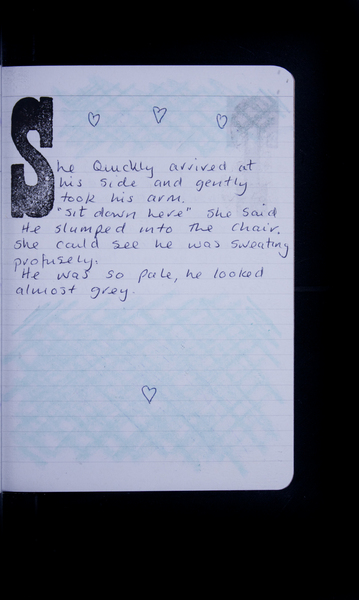 She Quickly arrived at
his side and gently
took his arm.
"Sit down here" she said
He slumped into the chair.
She could see he was sweating
profusely.
He was so pale, he looked
almost grey.